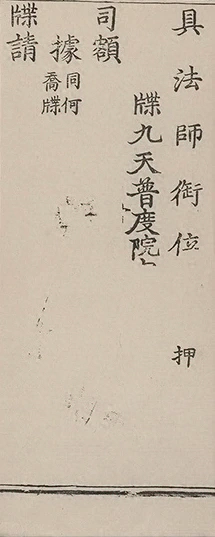 具法師銜位 押
牒九天普度院
司額
據同何
喬牒
牒請